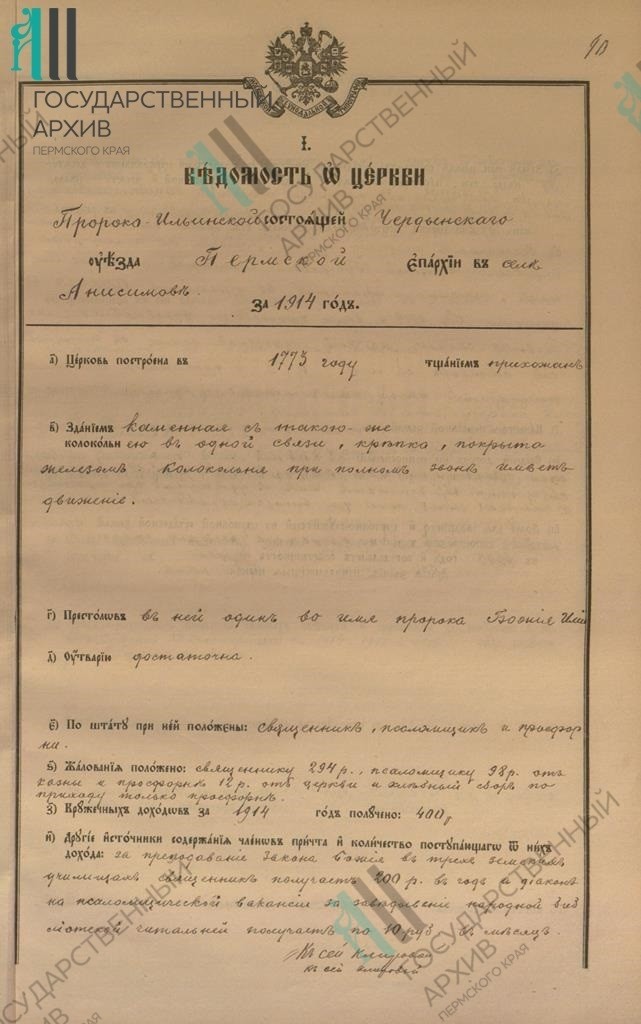 ГОСУДАРСТВЕННЫЙ
АРХИВ
ПЕРМСКОГО КРАЯ
І.
ВѢДОМОСТЬ Ѿ ЦЕ́РКВИ
Пророко-Ильинской состоящей Чердынскаго
оуѣзда Пермской епархіи въ селѣ
Анисимовѣ.
за 1914 годъ.
а) Церковь построена въ 1773 году тщаніемъ прихожанъ
в) Зданіемъ каменная съ такою-же
колокольнею въ одной связи, крѣпка, покрыта
желѣзомъ. Колокольня при полномъ звонѣ имѣетъ
движеніе.
г) Престоловъ въ ней одинъ во имя пророка Божія Иліи
д) Оутварію достаточна.
є) По штату при ней положены: священникъ, псаломщикъ и просфор
ни.
ѕ) Жалованія положено: священнику 294 р., псаломщику 98 р. отъ
казны и просфорнѣ 12 р. отъ церкви и хлѣбный сборъ по
приходу только просфорнѣ.
з) Кружечныхъ доходовъ за 1914 годъ получено: 400 р
и) Другіе источники содержанія членовъ причта и количество поступающаго ѿ нихъ
дохода: за преподаваніе Закона Божія въ трехъ земскихъ
училищахъ священникъ получаетъ 200 р. въ годъ и діаконъ
на псаломщической вакансіи за завѣдываніе народной биб
ліотекой читальней получаетъ по 10 руб въ мѣсяцъ.
Къ сей клировой
къ сей клировой